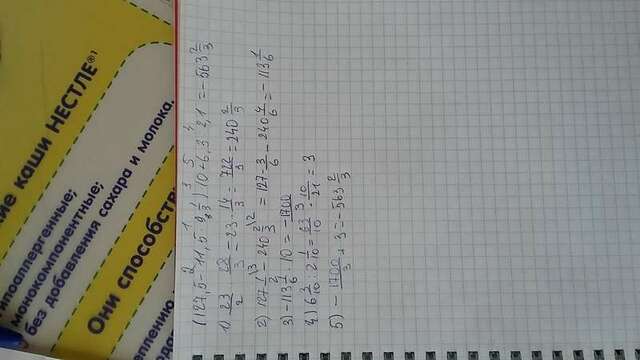 кие каши НЕСТЛЕ®1
гипоаллергенные;
монокомпонентные;
без добавления сахара и молока.
Они способств
еплению
(127,5 - 11,5 · 9 1/3) 10 + 6,3 : 2,1 = -563 2/3
1) 23/2 · 28/3 = 23 · 14/3 = 722/3 = 240 2/3
2) 127 1/2 - 240 2/3 = 127 - 3/6 - 240 4/6 = -113 1/6
3) -113 1/6 · 10 = -1700
4) 6 3/10 : 2 1/10 = 63/10 · 10/21 = 3
5) - 1700/3 + 3 = -563 2/3